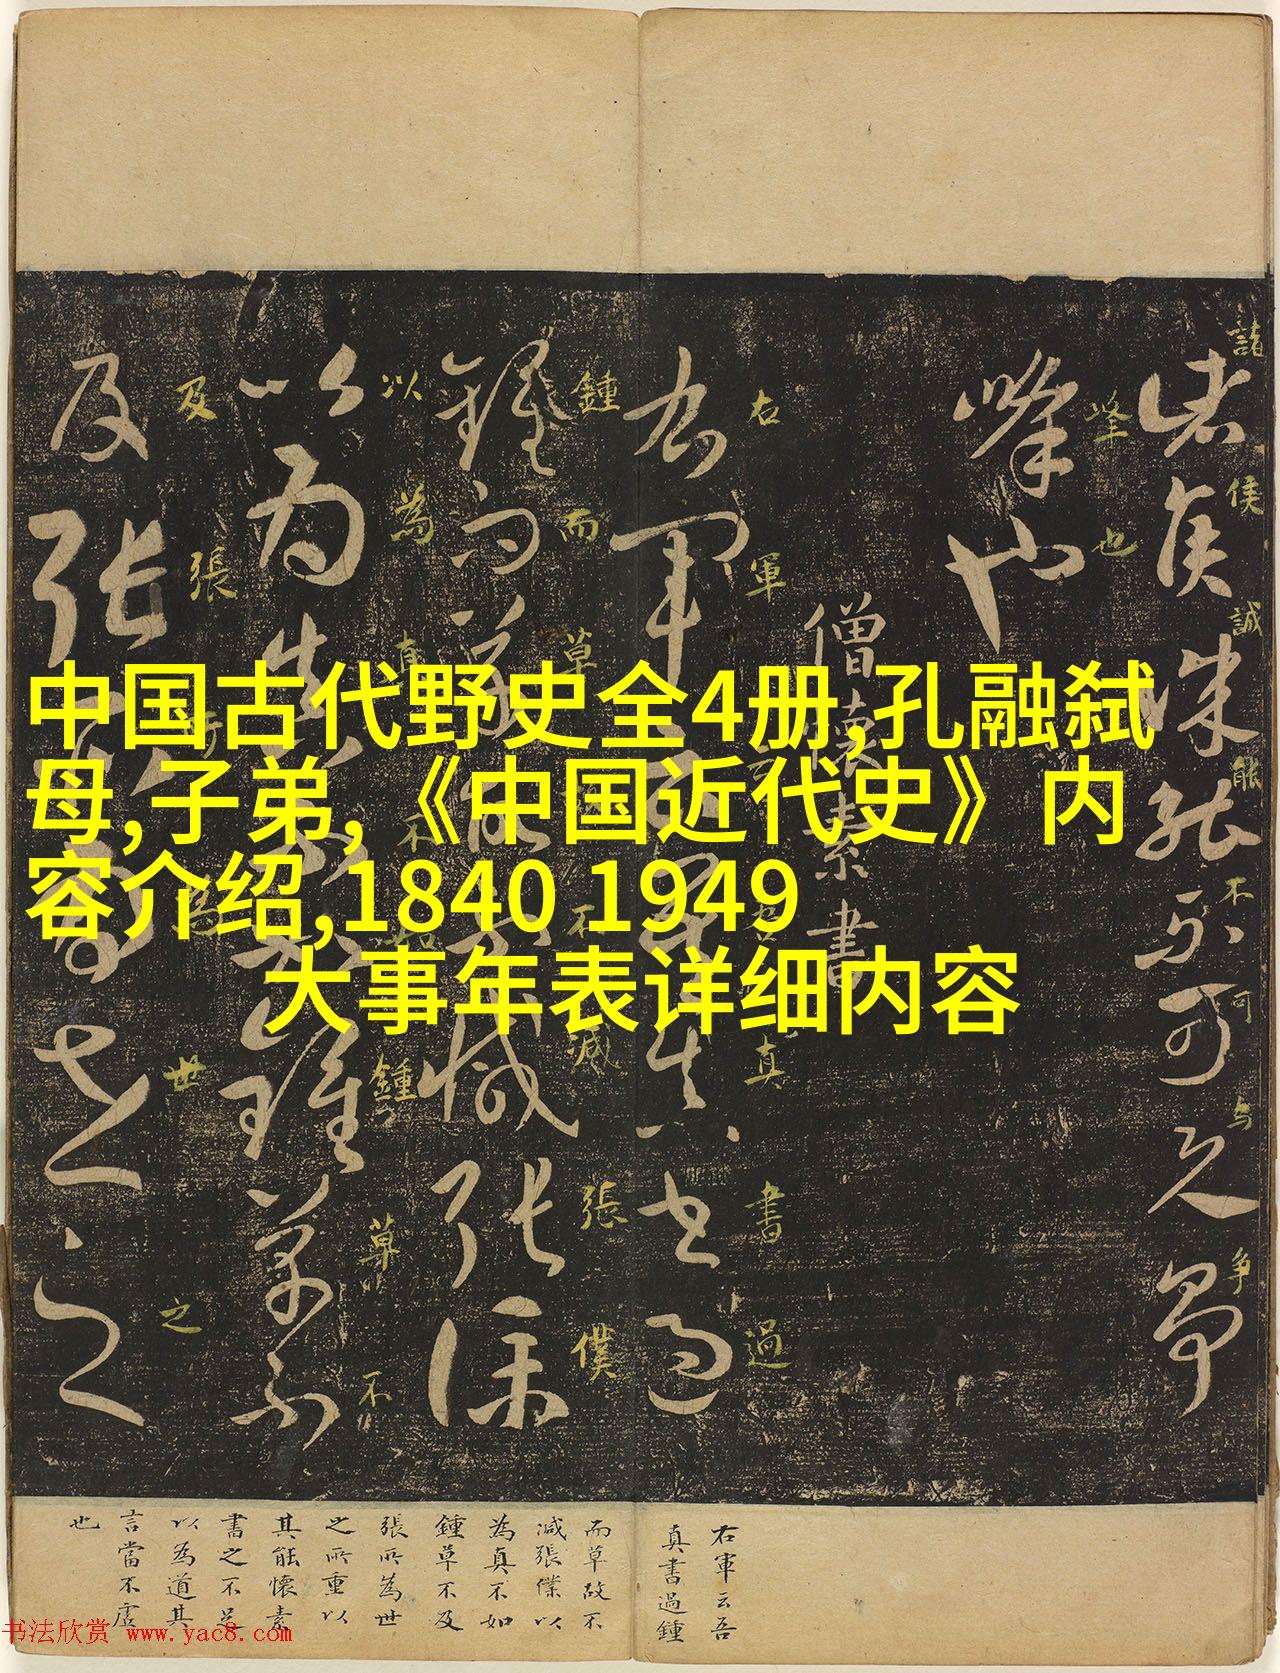 中国古代野史全4册,孔融弑
母,子弟,《中国近代史》内
容介绍,1840 1949
大事年表详细内容
諸侯誠能不可与争
峰也
僧懷素書
右軍云吾真書過
鍾而草故不減張僕
以為真不如鍾草不
及張所為世之
右軍云吾
真書過鍾
而草故不
減張僕以
為真不如
鍾草不及
張所為世
之所重以
其能懷素
書之不足
以為道其
言當不虛
也
书法欣赏 www.yac8.com